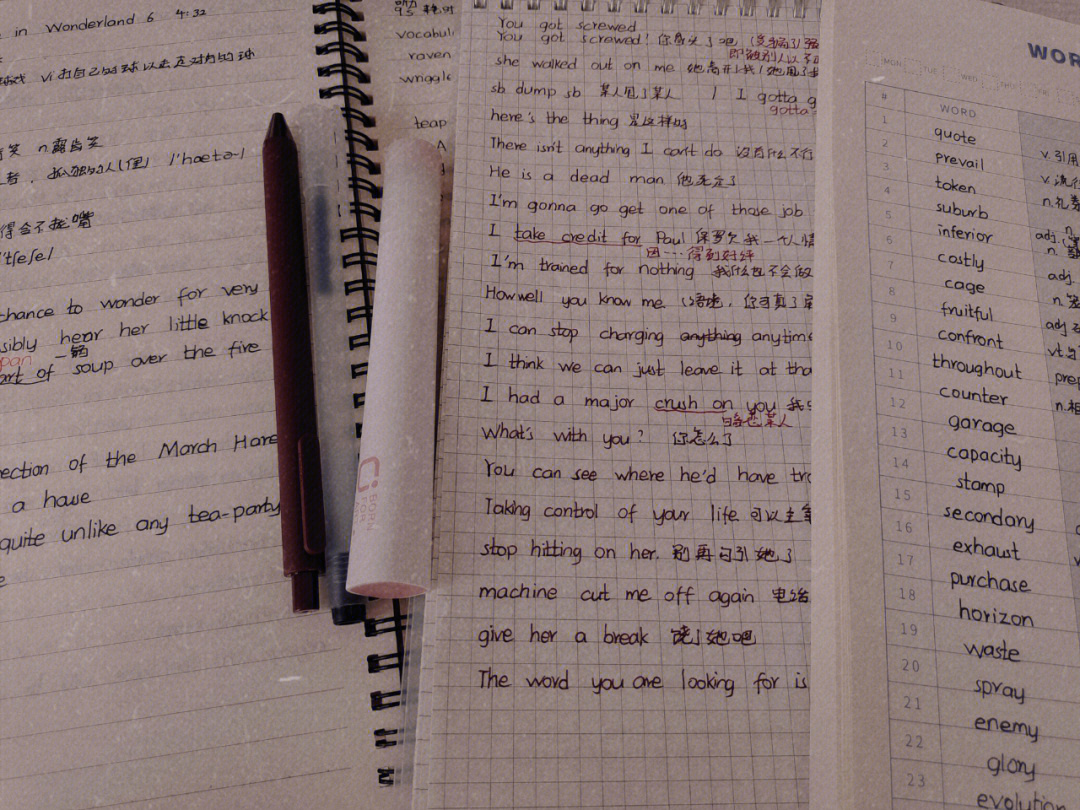 in Wonderland 6 4:32
vi 打自己的球以
笑 n 露齿笑
/'haetə/
得合不拢嘴
chance to wonder for very
sibly hear her little knock
pan 一锅
art of soup over the fire
ection of the March Hare
a house
quite unlike any tea-party
vocabul
raven
wriggle
teap
You got screwed
You got screwed! 你
she walked out on me 她离开了我/她甩了我
sb dump sb 某人甩了某人 / I gotta g
gotta
here's the thing 是这样的
There isn't anything I can't do 没有什么不行
He is a dead man 他死定了
I'm gonna go get one of those job
I take credit for Paul 保罗欠我一个人情
因…得到好评
I'm trained for nothing 我什么也不会做
How well you know me 你可真了
I can stop charging anything anytime
I think we can just leave it at tha
I had a major crush on you 我
暗恋某人
What's with you? 你怎么了
You can see where he'd have tro
Taking control of your life 可以主宰
stop hitting on her. 别再勾引她了
machine cut me off again 电话
give her a break 饶了她吧
The word you are looking for is
WOR
MON TUE WED THU
# WORD
1 quote v.引用
2 prevail v.流行
3 token n.礼券
4 suburb n.
5 inferior adj.
6 costly adj
7 cage n.笼
8 fruitful adj
9 confront vt.
10 throughout prep
11 counter n.相
12 garage
13 capacity
14 stamp
15 secondary
16 exhaust
17 purchase
18 horizon
19 waste
20 spray
21 enemy
22 glory
23 evolution